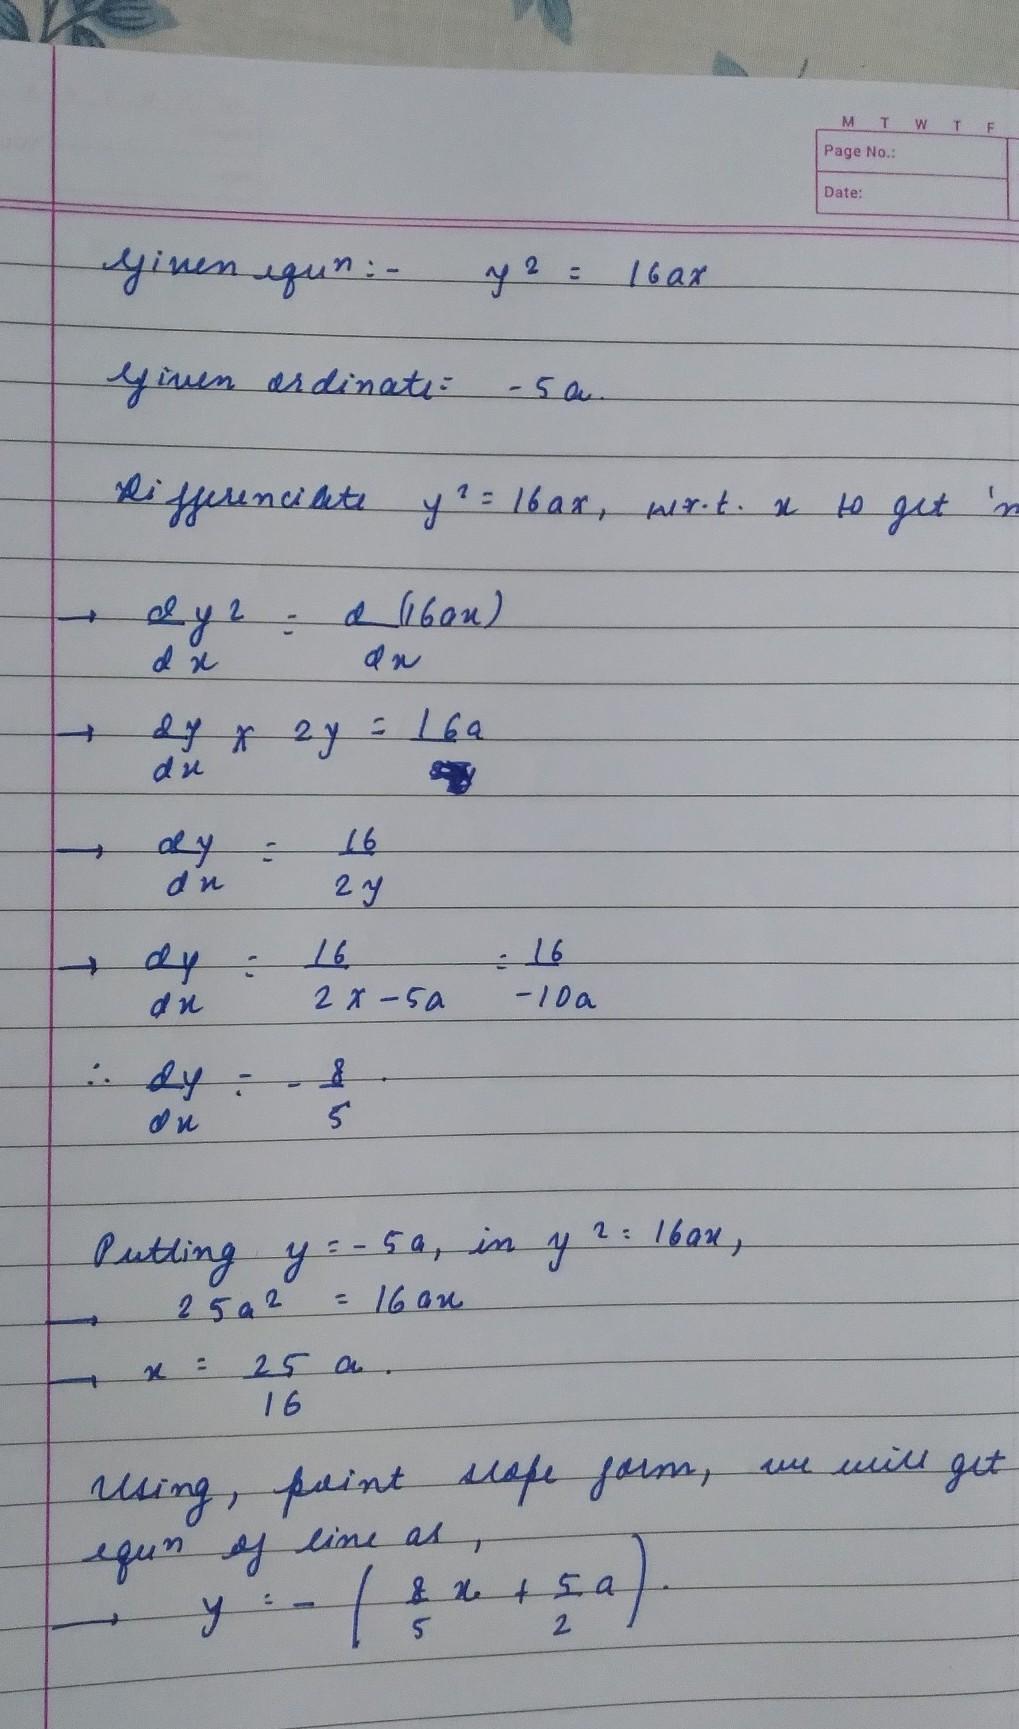 M T W T F
Page No.:
Date:
Given equn :- y² = 16ax
Given ordinate = -5a.
Differenciate y² = 16ax, w.r.t. x to get 'm
→ d y² / dx = d (16ax) / dx
→ dy/dx × 2y = 16a
→ dy/dx = 16/2y
→ dy/dx = 16 / 2 x -5a = 16 / -10a
∴ dy/dx = - 8/5 .
Putting y = -5a, in y² = 16ax,
→ 25a² = 16ax
→ x = 25/16 a.
Using, point slope form, we will get
equn of line as,
→ y = - ( 8/5 x + 5/2 a ).